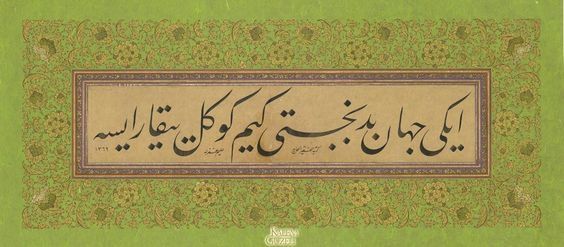 ایکی جهان بدبختی کیم کوکل ییقار ایسه
١٣٦٩
KALEM GÜZELİ